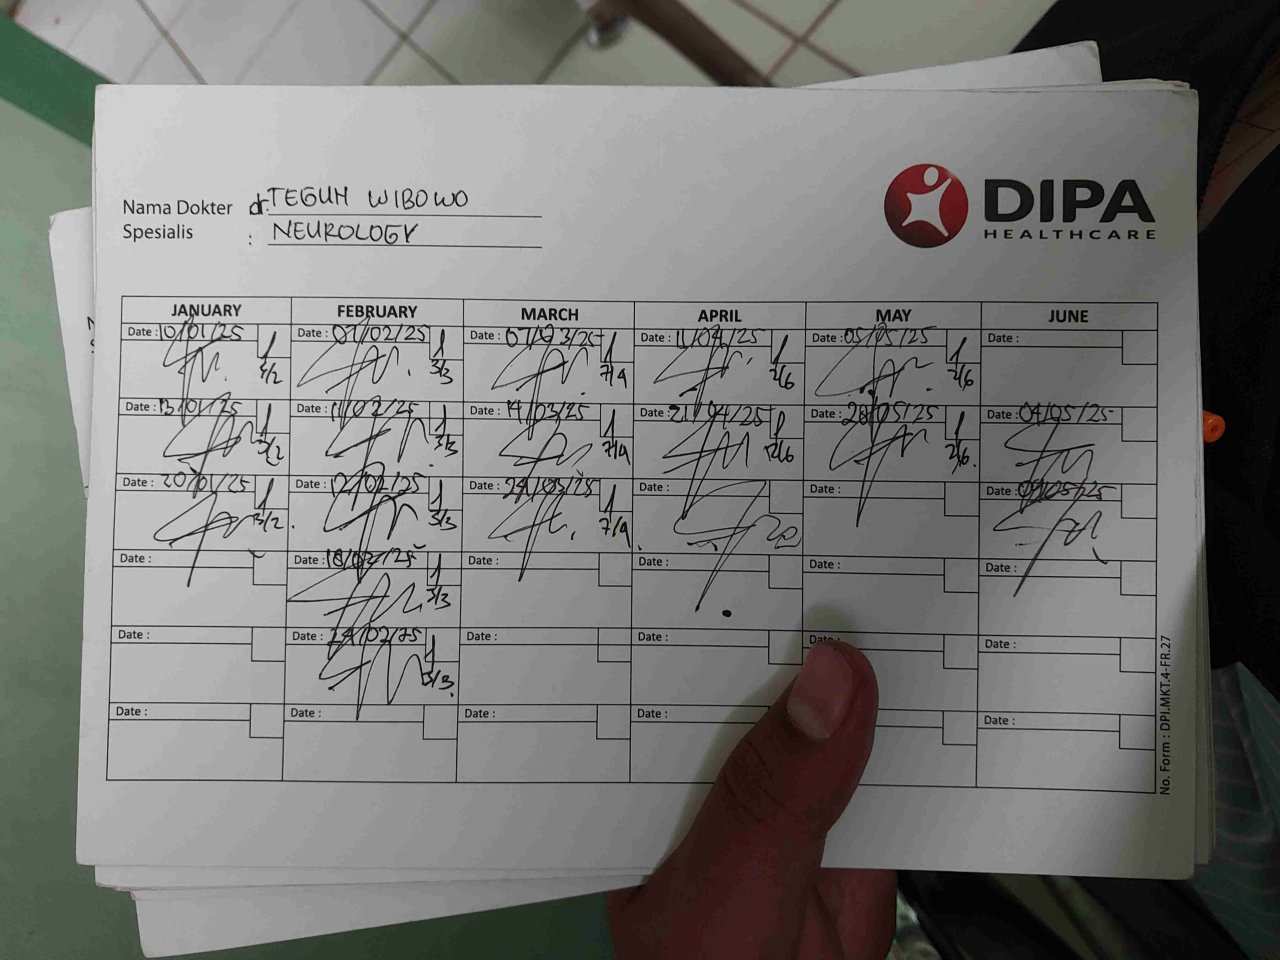 DIPA
HEALTHCARE
Nama Dokter dr. TEGUH WIBOWO
Spesialis : NEUROLOGY
JANUARY FEBRUARY MARCH APRIL MAY JUNE
Date : 10/01/25 Date : 07/02/25 Date : 07/03/25 Date : 11/04/25 Date : 05/05/25 Date :
3/3 7/4 2/6 2/6
Date : 13/01/25 Date : 11/02/25 Date : 14/03/25 Date : 21/04/25 Date : 26/05/25 Date : 04/05/25
3/2 3/3 7/4 2/6 2/6
Date : 20/01/25 Date : 12/02/25 Date : 24/03/25 Date : Date : Date :
3/2 3/3 7/4
Date : Date : 18/02/25 Date : Date : Date : Date :
3/3
Date : Date : 24/02/25 Date : Date : Date : Date :
3/3
Date : Date : Date : Date : Date :
No. Form : DPI.MKT.4-FR.27